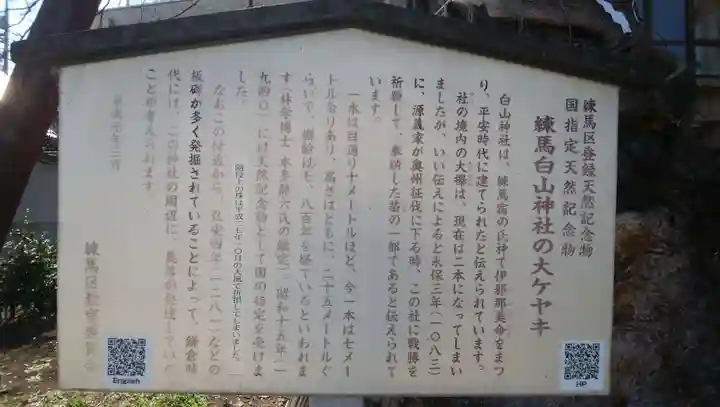 練馬区登録天然記念物
国指定天然記念物
練馬白山神社の大ケヤキ
白山神社は、練馬宿の氏神で伊邪那美命をまつ
り、平安時代に建てられたと伝えられています。
社の境内の大欅は、現在は二本になってしまい
ましたが、いい伝えによると永保三年(一〇八三)
に、源義家が奥州征伐に下る時、この社に戦勝を
祈願して、奉納した苗の一部であると伝えられて
います。
一本は目通り十メートルほど、今一本は七メー
トル余りあり、高さはともに、二十五メートルぐ
らいで、樹齢は七、八百年を経ているといわれま
す(林学博士 本多静六氏の鑑定)。昭和十五年(一
九四〇)には天然記念物として国の指定を受けま
した。
階段上の株は平成二七年一〇月の大風で折損してしまいました。
なおこの付近から、弘安四年(一二八一)などの
板碑が多く発掘されていることによって、鎌倉時
代には、この神社の周辺に、集落が発達していた
ことが考えられます。
平成元年三月
練馬区教育委員会
English
HP